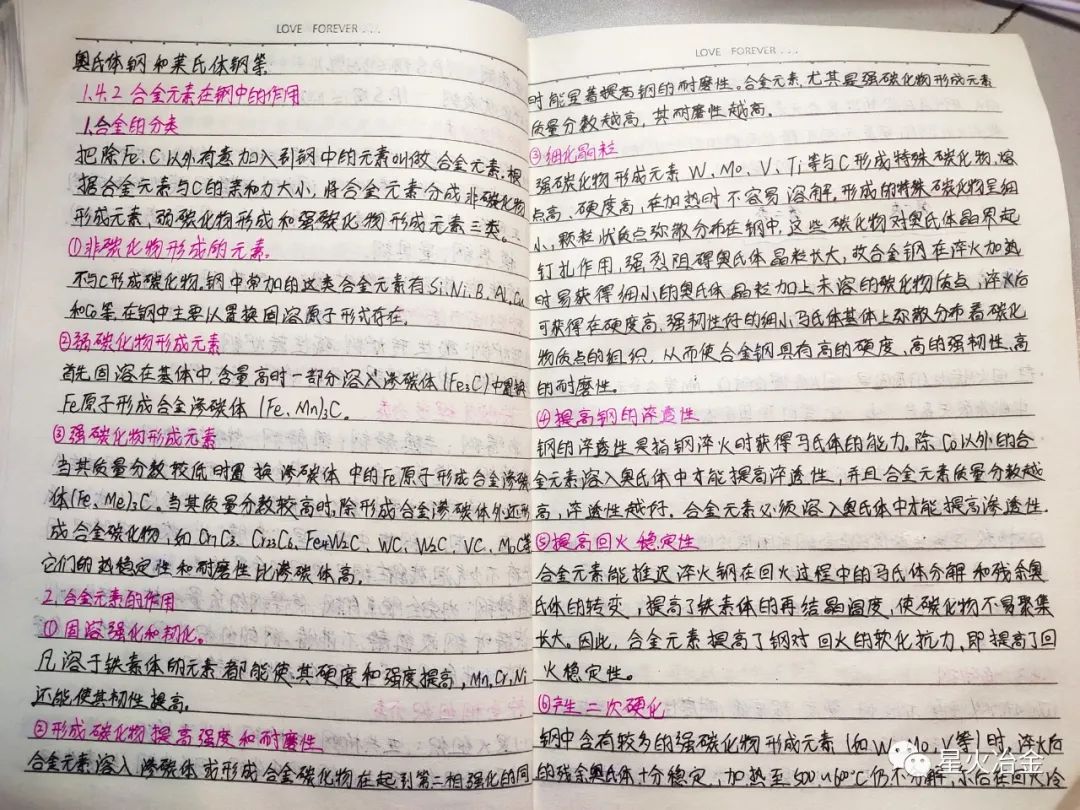 LOVE FOREVER...
奥氏体钢和莱氏体钢等.
1.4.2 合金元素在钢中的作用
1.合金的分类
把除Fe、C以外有意加入到钢中的元素叫做合金元素.根
据合金元素与C的亲和力大小,将合金元素分成非碳化物
形成元素、弱碳化物形成和强碳化物形成元素三类。
①非碳化物形成的元素。
不与C形成碳化物.钢中常加的这类合金元素有Si、Ni、B、Al、Cu
和Co等.在钢中主要以置换固溶原子形式存在.
②弱碳化物形成元素
首先固溶在基体中,含量高时一部分溶入渗碳体(Fe3C)中置换
Fe原子形成合金渗碳体(Fe、Mn)3C。
③强碳化物形成元素
当其质量分数较低时置换渗碳体中的Fe原子形成合金渗碳
体(Fe、Me)3C。当其质量分数较高时,除形成合金渗碳体外还形
成合金碳化物,如 Cr23C6、Fe4W2C、WC、W2C、VC、MoC等
它们的热稳定性和耐磨性比渗碳体高。
2.合金元素的作用
①固溶强化和韧化。
凡溶于铁素体的元素都能使其硬度和强度提高,Mn、Cr、Ni
还能使其韧性提高。
②形成碳化物提高强度和耐磨性
合金元素溶入渗碳体或形成合金碳化物在起到第二相强化的同
LOVE FOREVER...
时能显著提高钢的耐磨性。合金元素,尤其是强碳化物形成元素
质量分数越高,其耐磨性越高.
③细化晶粒
强碳化物形成元素 W、Mo、V、Ti等与C形成特殊碳化物,熔
点高、硬度高,在加热时不容易溶解.形成的特殊碳化物呈细
小,颗粒状质点弥散分布在钢中,这些碳化物对奥氏体晶界起
钉扎作用,强烈阻碍奥氏体晶粒长大,故合金钢在淬火加热
时易获得细小的奥氏体晶粒加上未溶的碳化物质点,淬火后
可获得在硬度高、强韧性好的细小马氏体基体上弥散分布着碳化
物质点的组织,从而使合金钢具有高的硬度、高的强韧性、高
的耐磨性。
④提高钢的淬透性
钢的淬透性是指钢淬火时获得马氏体的能力.除Co以外的合
金元素溶入奥氏体中才能提高淬透性,并且合金元素质量分数越
高,淬透性越好.合金元素必须溶入奥氏体中才能提高淬透性.
⑤提高回火稳定性
合金元素能推迟淬火钢在回火过程中的马氏体分解和残余奥
氏体的转变,提高了铁素体的再结晶温度,使碳化物不易聚集
长大。因此,合金元素提高了钢对回火的软化抗力,即提高了回
火稳定性。
⑥产生二次硬化
钢中含有较多的强碳化物形成元素(如W、Mo、V等)时,淬火后
的残余奥氏体十分稳定,加热至500~60℃仍不分解,示后在回火冷
星火冶金